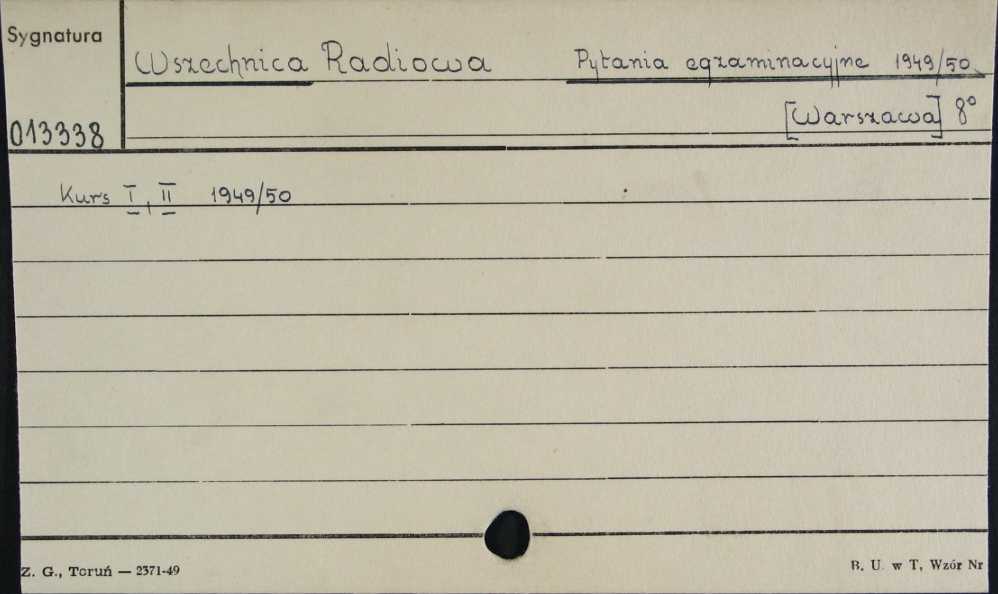 Sygnatura
Wszechnica Radiowa Pytania egzaminacyjne 1949/50.
[Warszawa] 8°
013338
Kurs I, II 1949/50
Z. G., Toruń — 2371-49
B. U. w T, Wzór Nr